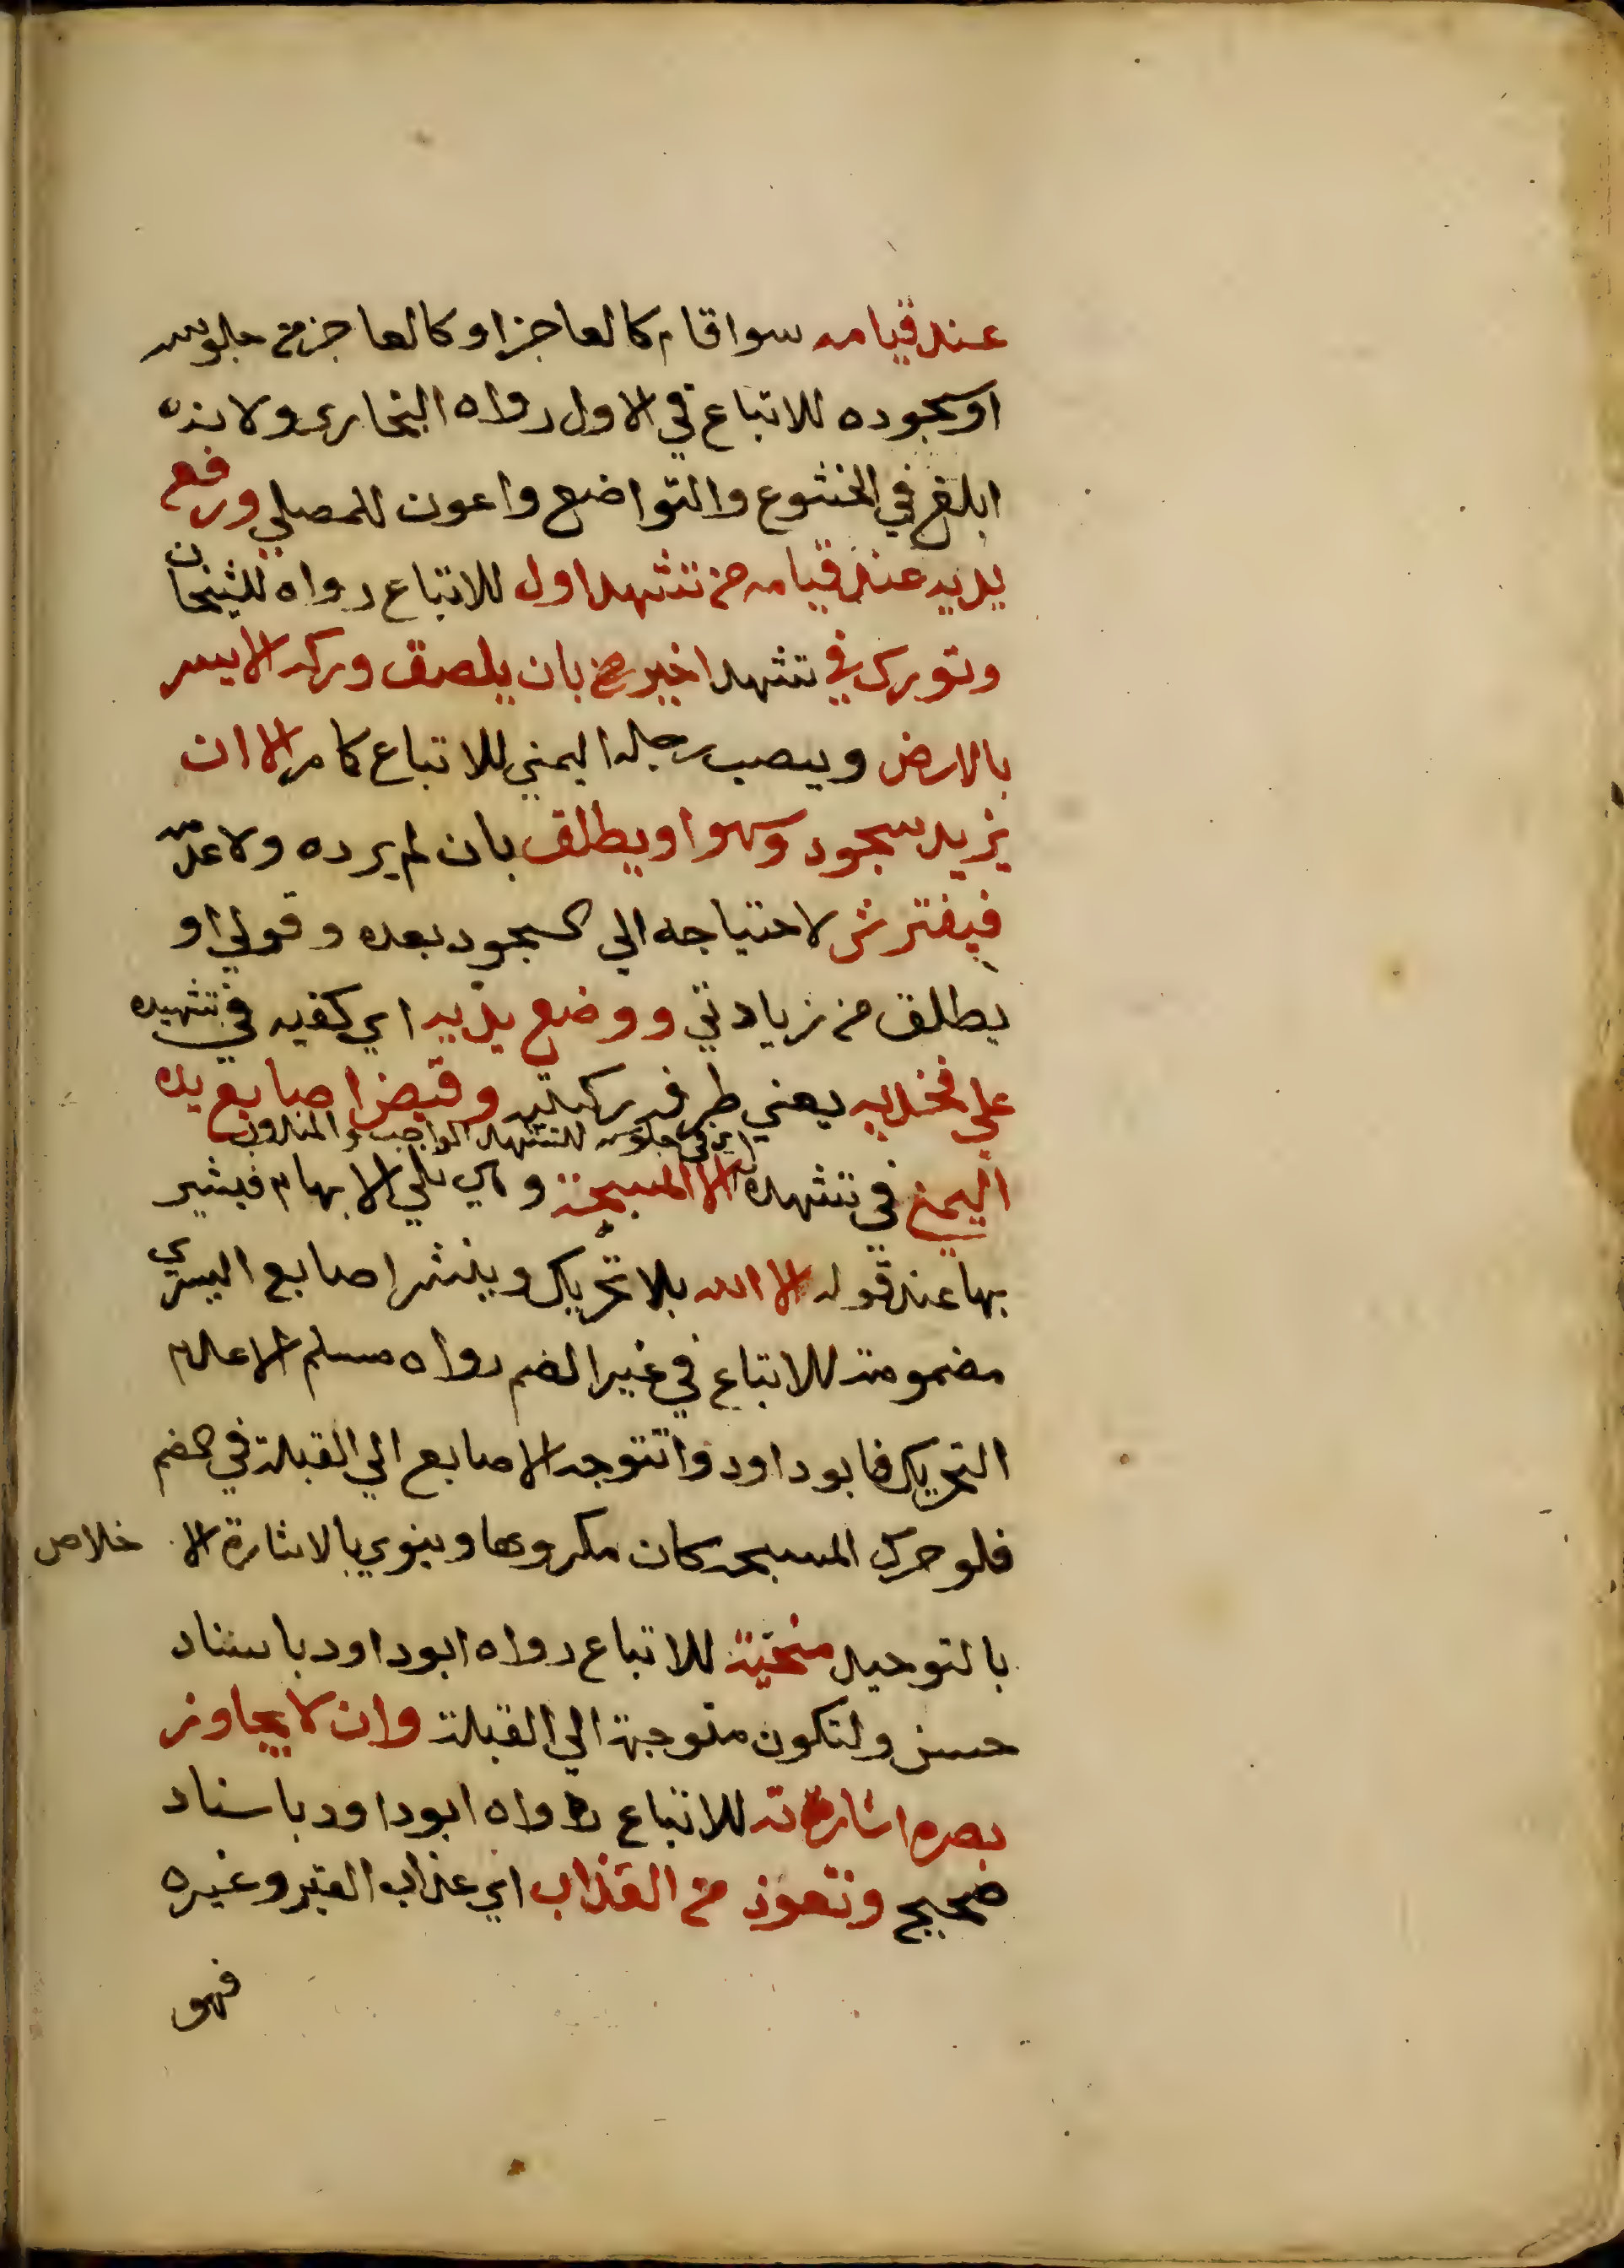 عند قيامه سوا قام كالعاجز او كالعاجز من جلوسه
او سجوده للاتباع في الاول رواه البخاري ولانه
ابلغ في الخشوع والتواضع واعون للمصلي ورفع
يديه عند قيامه من تشهد اول للاتباع رواه الشيخان
وتورك في تشهد اخير بان يلصق وركه الايسر
بالارض وينصب رجله اليمني للاتباع كامر الا ان
يزيد سجود سهو او يطلق بان لم يرده ولا عدمه
فيفترش لاحتياجه الي السجود بعده وقولي او
يطلق من زيادتي ووضع يديه اي كفيه في تشهده
علي فخذيه يعني طرف ركبتيه وقبض اصابع يده
اي في جلوسه للتشهد الواجب والمندوب
اليمني في تشهده الا المسبحة وهي تلي الابهام فيشير
بها عند قوله الا الله بلا تحريك وينشر اصابع اليسري
مضمومة للاتباع في غير الضم رواه مسلم الا عدم
التحريك فابو داود واتتوجه الاصابع الي القبلة في الضم
فلو حرك المسبحه كان مكروها وينوي بالاشارة الا خلاص
بالتوحيد منحنية للاتباع رواه ابو داود باسناد
حسن ولتكون متوجهة الي القبلة وان لا يجاوز
بصره اشارته للاتباع رواه ابو داود باسناد
صحيح وتعوذ من العذاب اي عذاب القبر وغيره
فهو